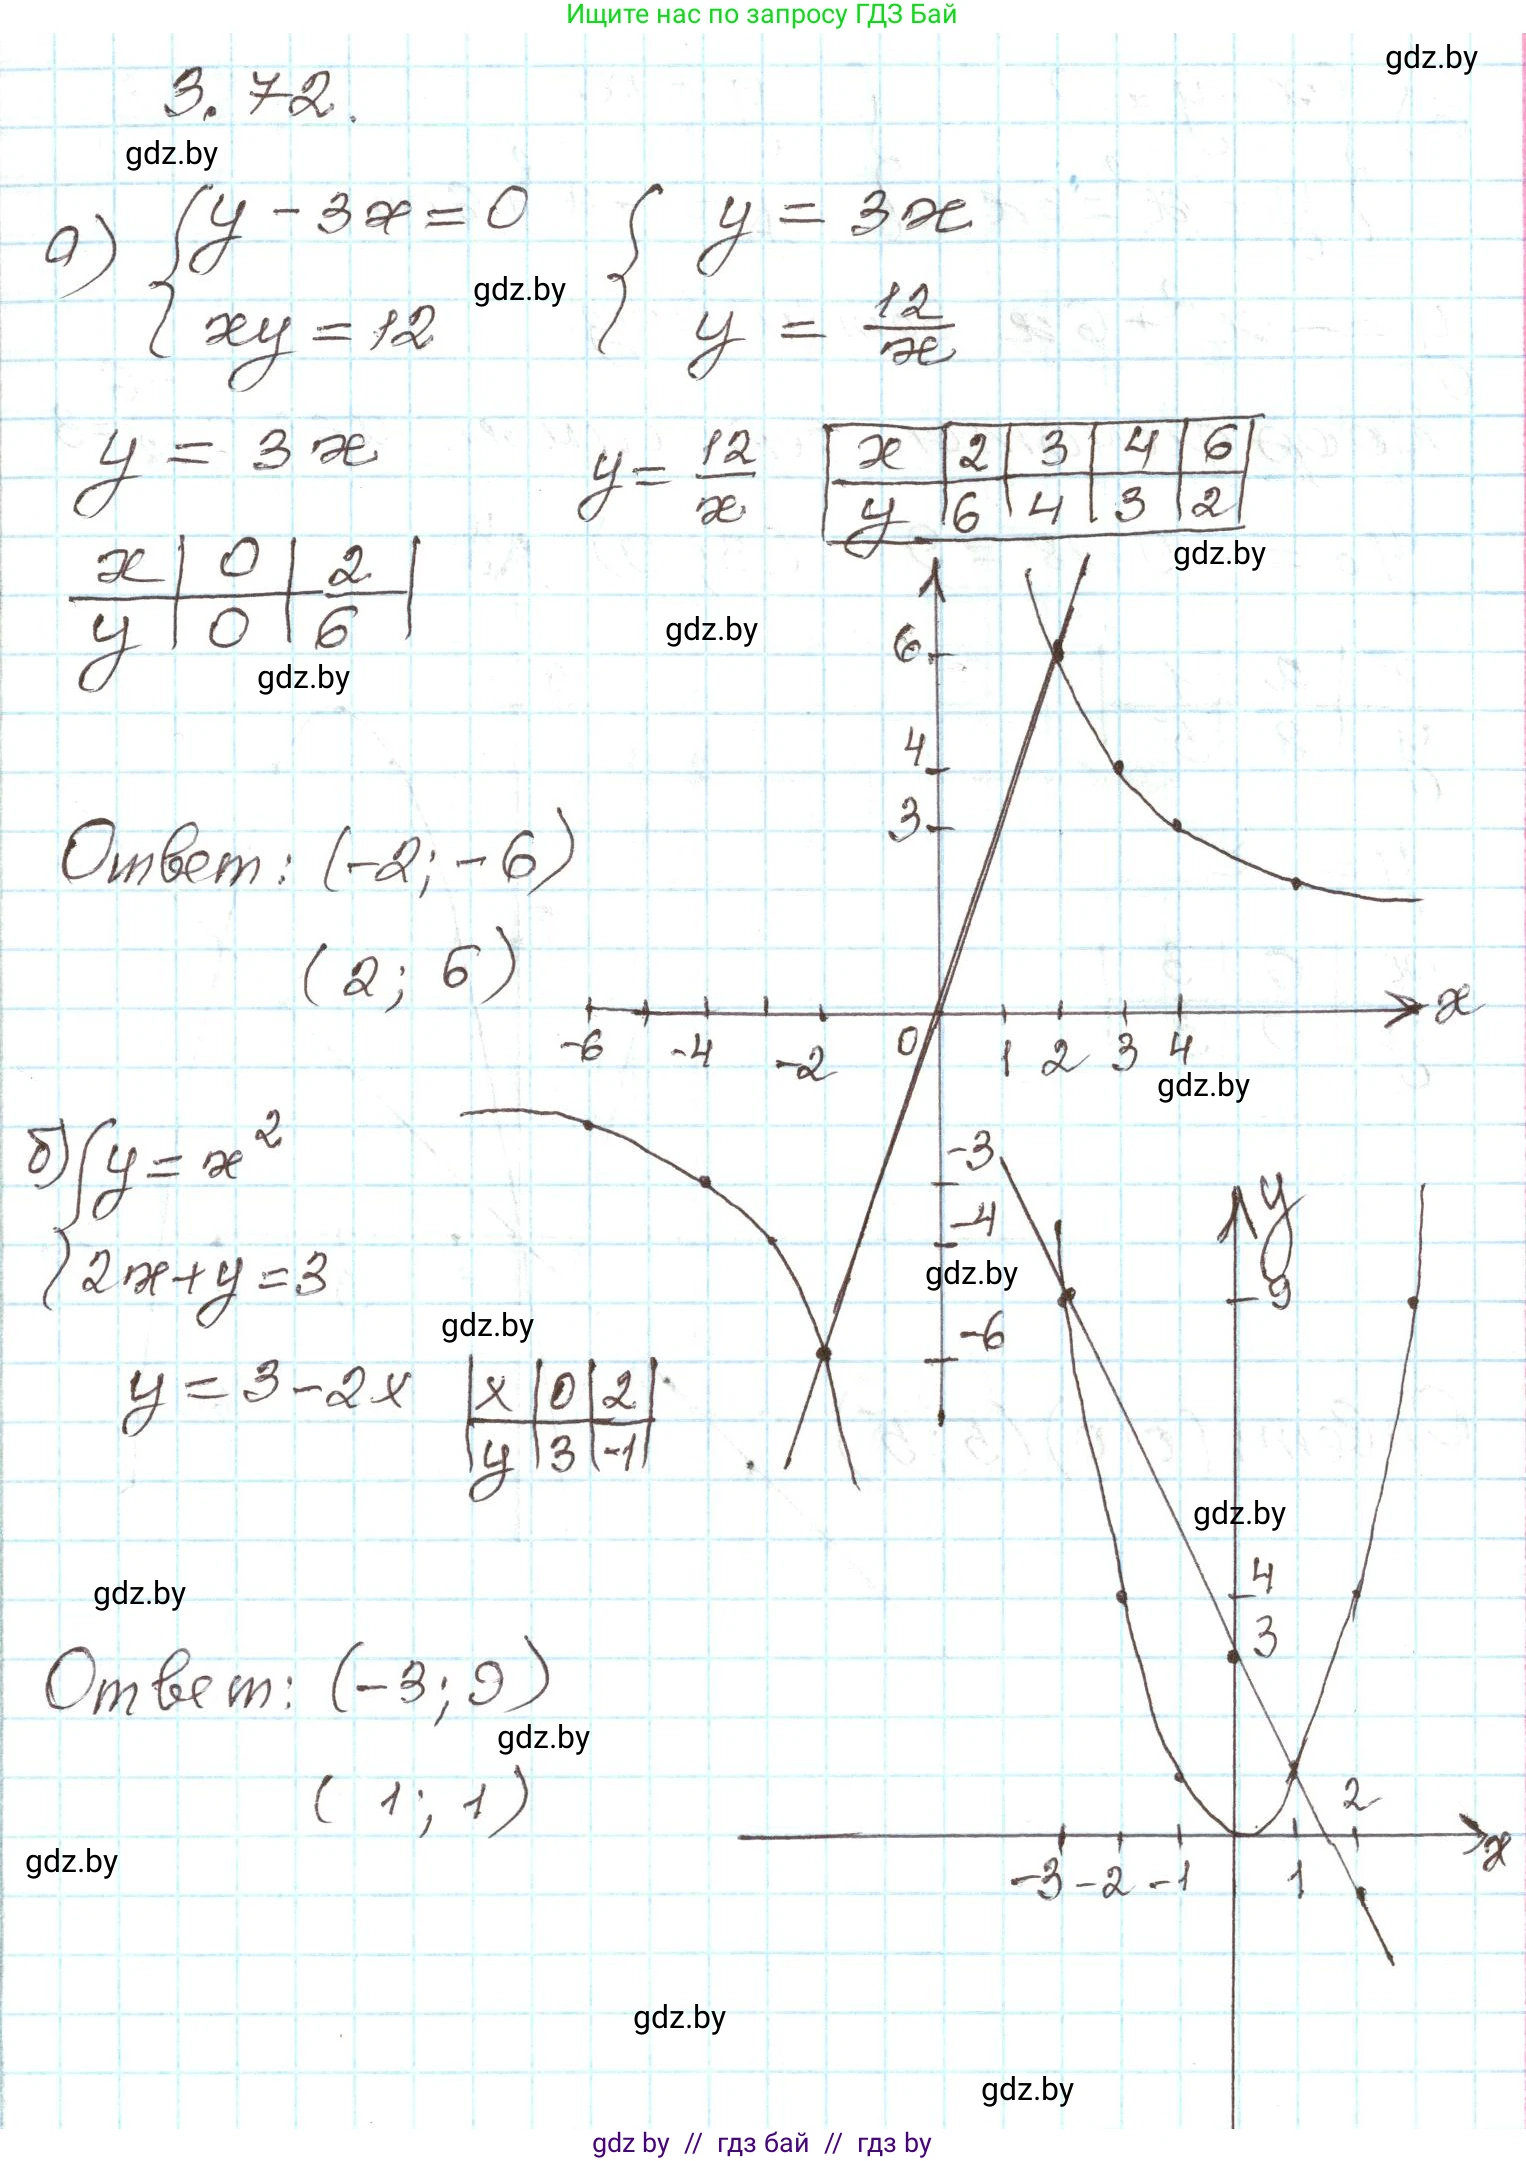 Ищите нас по запросу ГДЗ Бай
gdz.by
3.72.
gdz.by
а) { y - 3x = 0 { y = 3x
gdz.by
xy = 12 y = 12/x
y = 3x y = 12/x
x 2 3 4 6
y 6 4 3 2
gdz.by
x 0 2
y 0 6
gdz.by
gdz.by
6
4
3
Ответ: (-2; -6)
(2; 6)
-6 -4 -2 0 1 2 3 4 x
gdz.by
-3
-4
-6
gdz.by
б) { y = x²
2x + y = 3
gdz.by
y = 3 - 2x
x 0 2
y 3 -1
y
9
gdz.by
4
3
gdz.by
Ответ: (-3; 9)
gdz.by
(1; 1)
gdz.by
-3 -2 -1 1 2 x
gdz.by
gdz.by
gdz by // гдз бай // гдз by